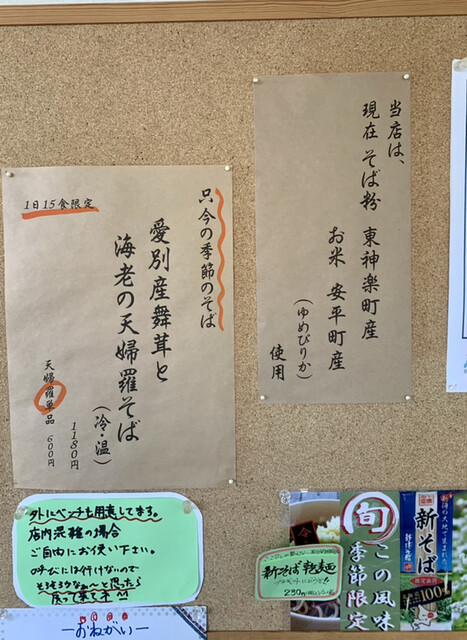 当店は、
現在 そば粉 東神楽町産
お米 安平町産
(ゆめぴりか)
使用
1日15食限定
只今の季節のそば
愛別産舞茸と
海老の天婦羅そば
(冷・温)
1180円
天婦羅単品 600円
外にベンチも用意してます。
店内混雑の場合
ご自由にお使い下さい。
呼びには行けないので
そろそろかな〜と思ったら
戻って来て下さい
おねがい
新そば乾麺
230円
旬
この風味
季節限定
新そば
100%